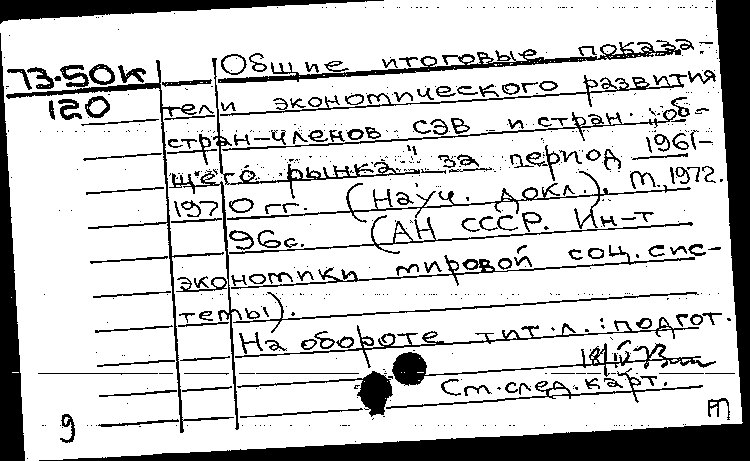 73-50к
120
Общие итоговые показа-
тели экономического развития
стран-членов СЭВ и стран „об-
щего рынка" за период 1961-
1970 гг. (Науч. докл.). М., 1972.
96с. (АН СССР. Ин-т
экономики мировой соц. сис-
темы).
На обороте тит. л.: подгот.
18/IV 73
См. след. карт.
9